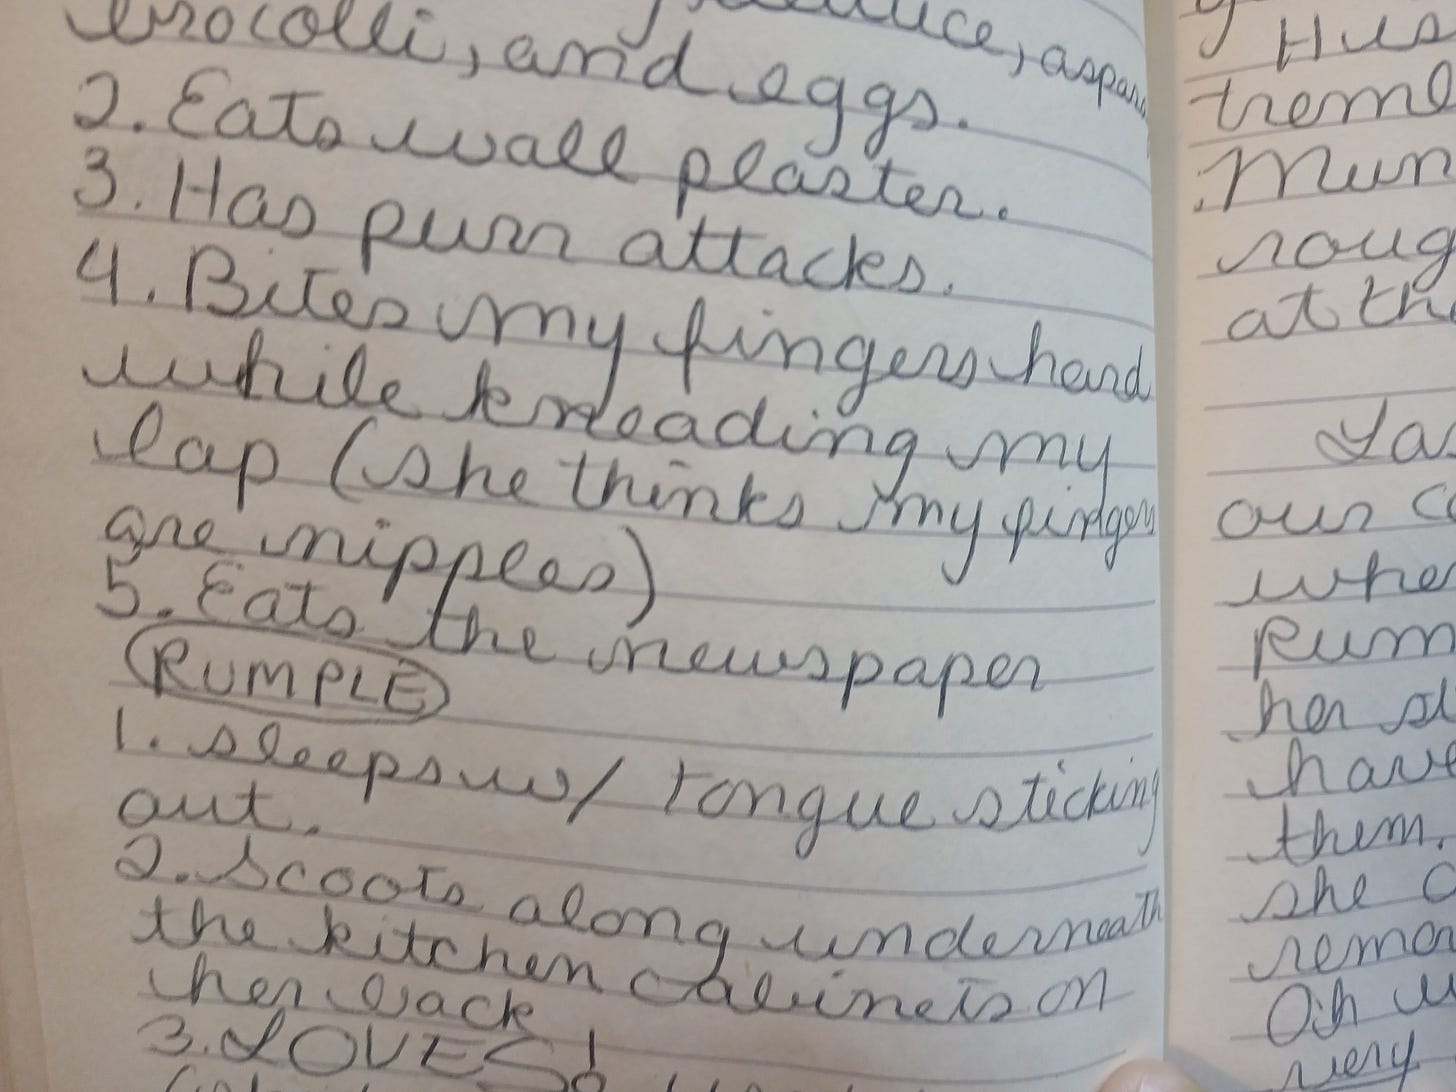 brocolli, and eggs.
2. Eats wall plaster.
3. Has purr attacks.
4. Bites my fingers hard
while kneading my
lap (she thinks my fingers
are nipples)
5. Eats the newspaper
RUMPLE
1. sleeps w/ tongue sticking
out.
2. Scoots along underneath
the kitchen cabinets on
her back
3. LOVES!
Hus
trem
Mun
roug
at th
our c
whe
Rum
her sl
have
them.
she
remo
Oh
very